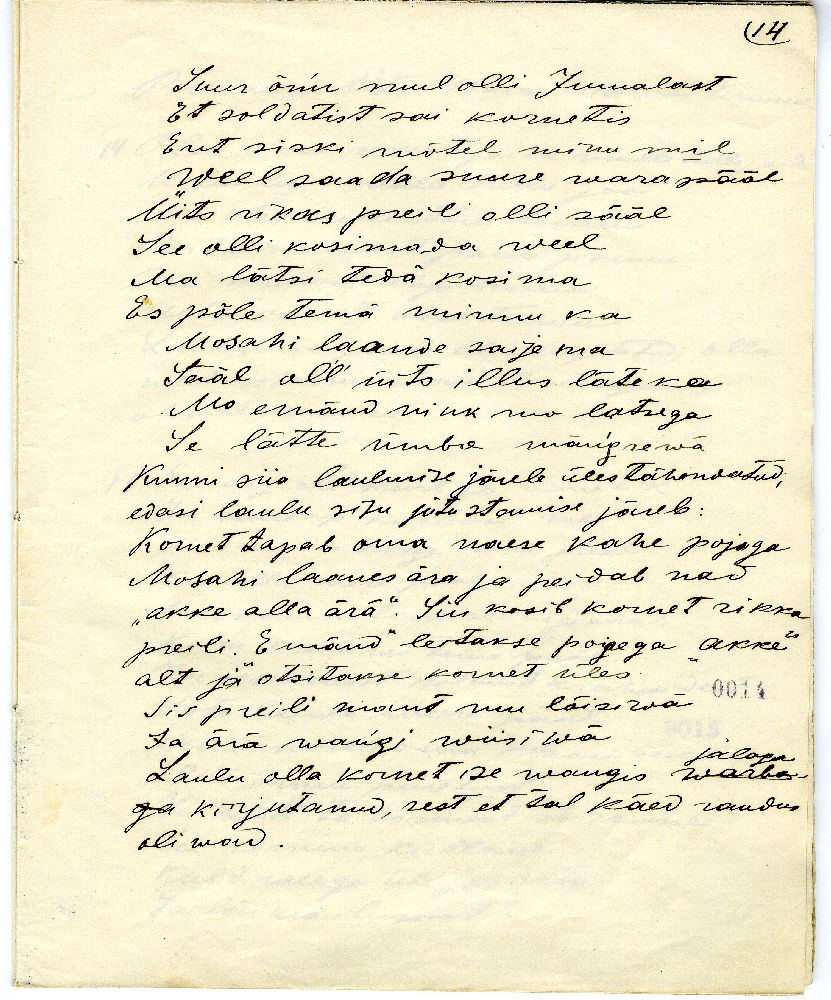 14
Suur õnn mul olli Jummalast
Et soldatist sai kornetis
Ent siski mõtel minu mil
Weel saada suure wara pääl
Üits rikas preili olli sääl
See olli kosimada weel
Ma lätsi tedä kosima
Es põle temä minnu ka
Mosahi laande saije ma
Sääl oll' üits illus läteke
Mo emänd nink mo latsega
Se lätte ümbre mängsewä
Kunni siia laulmise järele ülestähendatud,
edasi laulu sisu jutustamise järel:
Kornet tapab oma naese kahe pojaga
Mosahi laanes ära ja peidab nad
„akke alla ärä". Siis kosib kornet rikka
preili. Emänd" leitakse pojega "akke"
alt ja otsitakse kornet üles.
0014
Sis preili mant mu läisiwä
Ja ärä wangi wiisiwä
jalaga
Laulu olla kornet ise wangis warba-
ga kirjutanud, sest et tal käed raudus
oliwad.